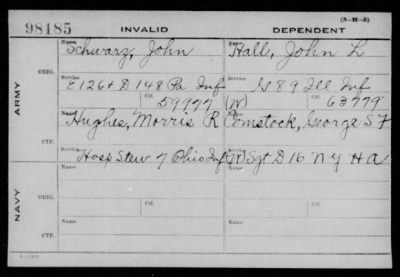 98185 INVALID DEPENDENT (3-M-3)
Name Name
Schwarz, John Hall, John L
ORIG. Service Service
E 126 & D 148 Pa Inf G 89 Ill Inf
Ctf. 59977 (W) Ctf. 63779
ARMY
Name Name
Hughes, Morris R Comstock, George S F
CTF. Service Service
Hosp Stew 7 Ohio Inf QM Sgt D 16 NY H A
Name Name
ORIG. Service Service
Ctf. Ctf.
NAVY
Name Name
CTF. Service Service